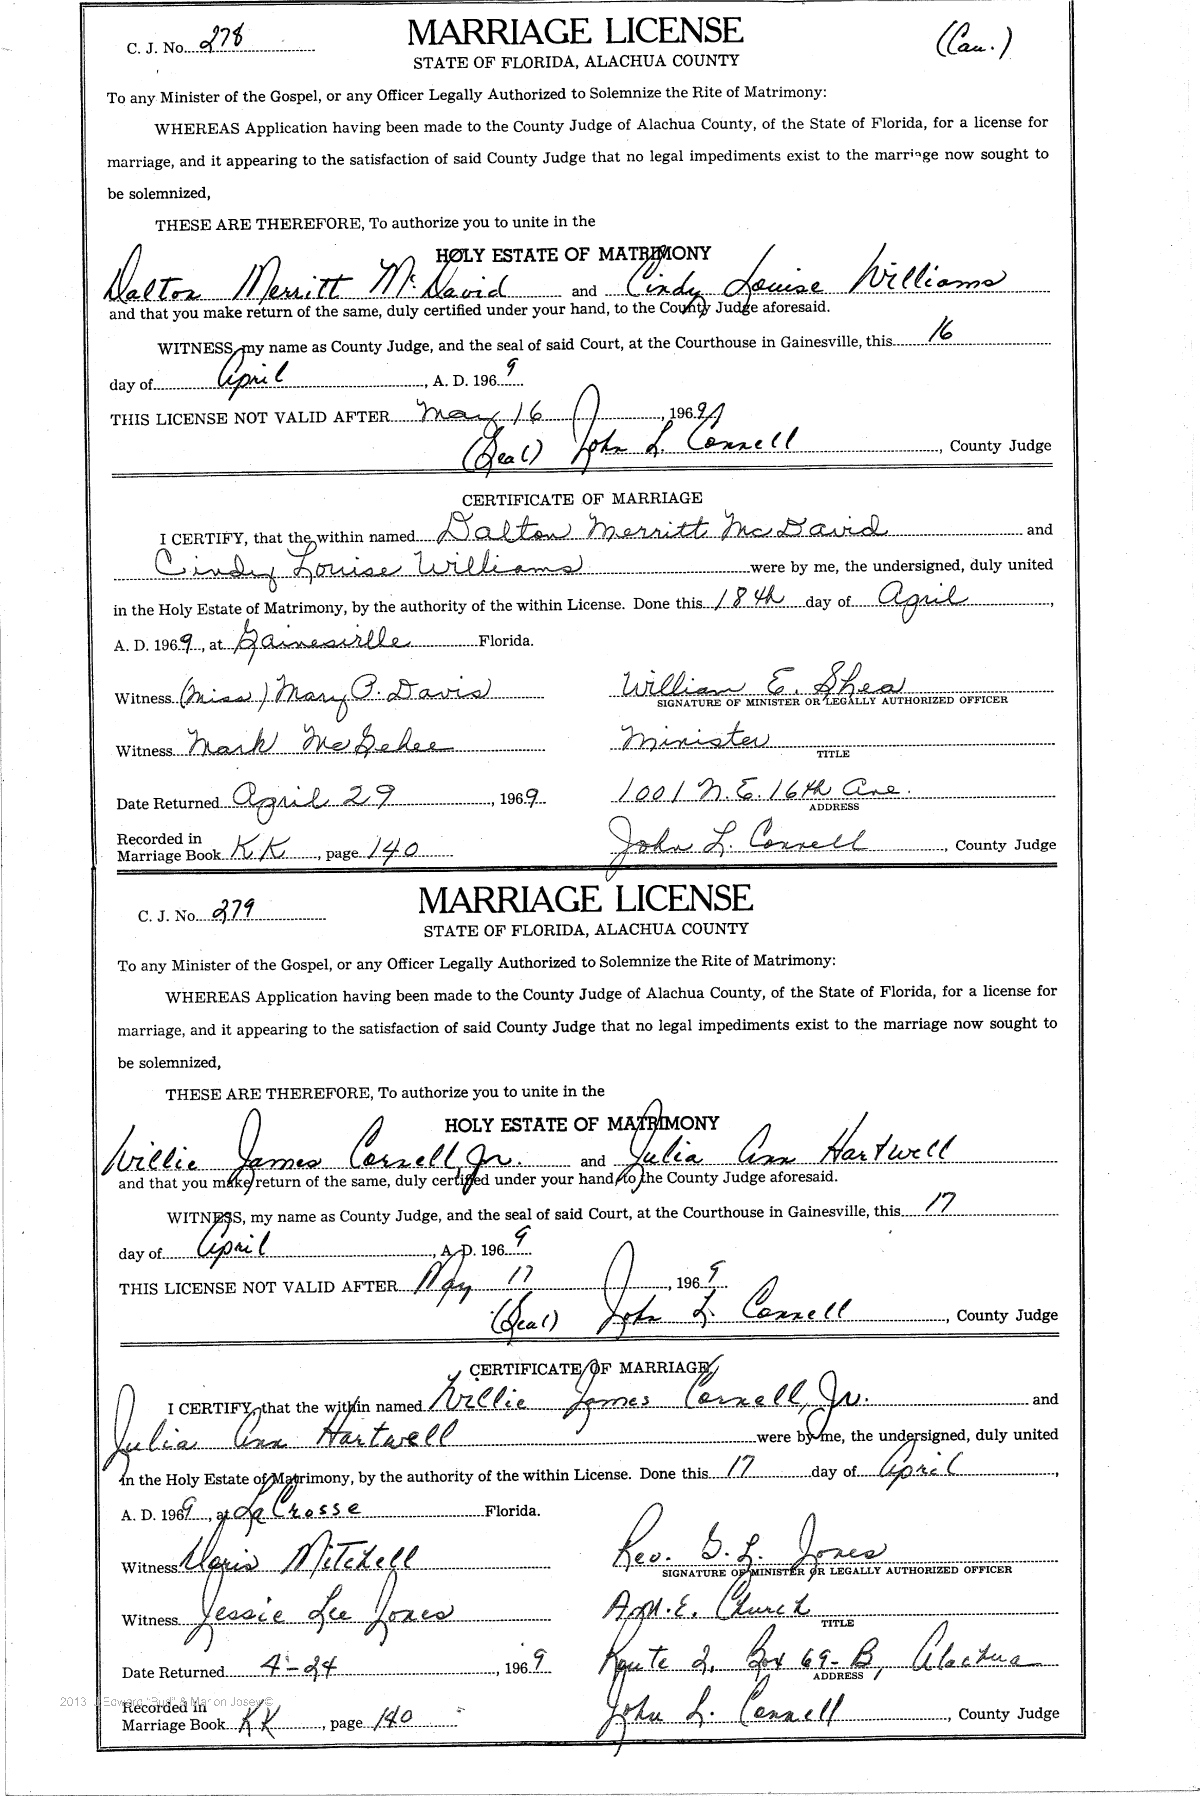 C. J. No. 278 MARRIAGE LICENSE (Cau.)
STATE OF FLORIDA, ALACHUA COUNTY
To any Minister of the Gospel, or any Officer Legally Authorized to Solemnize the Rite of Matrimony:
WHEREAS Application having been made to the County Judge of Alachua County, of the State of Florida, for a license for
marriage, and it appearing to the satisfaction of said County Judge that no legal impediments exist to the marriage now sought to
be solemnized,
THESE ARE THEREFORE, To authorize you to unite in the
HOLY ESTATE OF MATRIMONY
Dalton Merritt McDavid and Cindy Louise Williams
and that you make return of the same, duly certified under your hand, to the County Judge aforesaid.
WITNESS, my name as County Judge, and the seal of said Court, at the Courthouse in Gainesville, this 16
day of April, A. D. 1969
THIS LICENSE NOT VALID AFTER May 16, 1969
(Seal) John L. Connell, County Judge
CERTIFICATE OF MARRIAGE
I CERTIFY, that the within named Dalton Merritt McDavid and
Cindy Louise Williams were by me, the undersigned, duly united
in the Holy Estate of Matrimony, by the authority of the within License. Done this 18th day of April,
A. D. 1969, at Gainesville Florida.
Witness (Miss) Mary P. Davis William E. Shea
SIGNATURE OF MINISTER OR LEGALLY AUTHORIZED OFFICER
Witness Mark McGehee Minister
TITLE
Date Returned April 29, 1969 1001 N.E. 16th Ave.
ADDRESS
Recorded in
Marriage Book KK, page 140 John L. Connell, County Judge
C. J. No. 279 MARRIAGE LICENSE
STATE OF FLORIDA, ALACHUA COUNTY
To any Minister of the Gospel, or any Officer Legally Authorized to Solemnize the Rite of Matrimony:
WHEREAS Application having been made to the County Judge of Alachua County, of the State of Florida, for a license for
marriage, and it appearing to the satisfaction of said County Judge that no legal impediments exist to the marriage now sought to
be solemnized,
THESE ARE THEREFORE, To authorize you to unite in the
HOLY ESTATE OF MATRIMONY
Willie James Cornell, Jr. and Julia Ann Hartwell
and that you make return of the same, duly certified under your hand, to the County Judge aforesaid.
WITNESS, my name as County Judge, and the seal of said Court, at the Courthouse in Gainesville, this 17
day of April, A. D. 1969
THIS LICENSE NOT VALID AFTER May 17, 1969
(Seal) John L. Connell, County Judge
CERTIFICATE OF MARRIAGE
I CERTIFY, that the within named Willie James Cornell, Jr. and
Julia Ann Hartwell were by me, the undersigned, duly united
in the Holy Estate of Matrimony, by the authority of the within License. Done this 17 day of April,
A. D. 1969, at La Crosse Florida.
Witness Doris Mitchell Rev. G. L. Jones
SIGNATURE OF MINISTER OR LEGALLY AUTHORIZED OFFICER
Witness Jessie Lee Jones A.M.E. Church
TITLE
Date Returned 4-24, 1969 Route 2, Box 69-B, Alachua
ADDRESS
2013 J Edward "Bud" & Marion Josey ©
Recorded in
Marriage Book KK, page 140 John L. Connell, County Judge